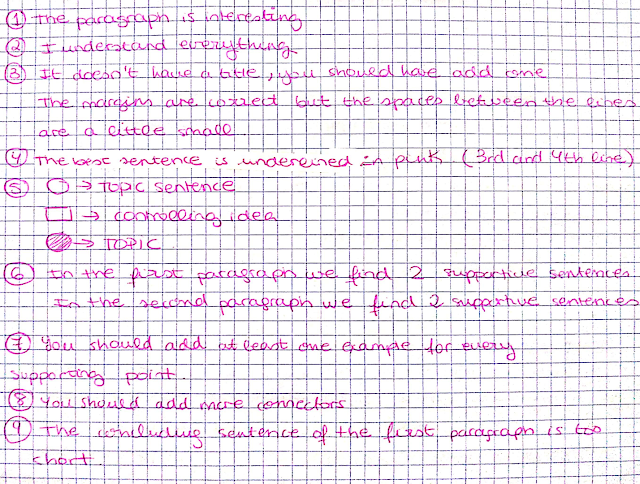 ① The paragraph is interesting
② I understand everything.
③ It doesn't have a title, you should have add one
The margins are correct but the spaces between the lines
are a little small
④ The best sentence is underlined in pink (3rd and 4th line)
⑤ → Topic sentence
→ controlling idea
→ TOPIC
⑥ In the first paragraph we find 2 supportive sentences
In the second paragraph we find 2 supportive sentences
⑦ You should add at least one example for every
supporting point.
⑧ You should add more connectors
⑨ The concluding sentence of the first paragraph is too
short.